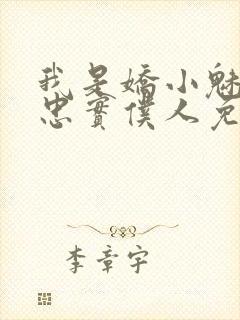 我是嬌小魅
忠實僕人免
李章宇